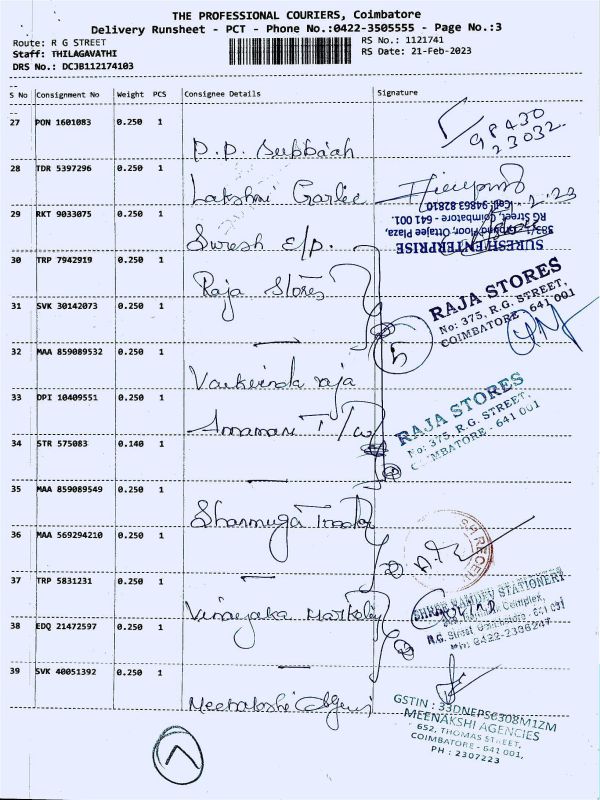 THE PROFESSIONAL COURIERS, Coimbatore
Delivery Runsheet - PCT - Phone No.:0422-3505555 - Page No.:3
Route: R G STREET
RS No.: 1121741
Staff: THILAGAVATHI
RS Date: 21-Feb-2023
DRS No.: DCJB112174103
S No Consignment No Weight PCS Consignee Details Signature
27 PON 1601083 0.250 1
P.P. Subbaiah
98430
23032
28 TDR 5397296 0.250 1
Lakshmi Garlic
29 RKT 9033075 0.250 1
Suresh E/P.
SURESH ENTERPRISE
383/1, Ground Floor, Ottajee Plaza,
RG Street, Coimbatore - 641 001.
Cell: 94863 82810
30 TRP 7942919 0.250 1
Raja Stores
RAJA STORES
No: 375, R.G. STREET,
COIMBATORE - 641 001
31 SVK 30142073 0.250 1
5
32 MAA 859089532 0.250 1
raja
33 DPI 10409551 0.250 1
RAJA STORES
No: 375, R.G. STREET,
COIMBATORE - 641 001
34 STR 575083 0.140 1
35 MAA 859089549 0.250 1
Shanmuga
36 MAA 569294210 0.250 1
37 TRP 5831231 0.250 1
Vinayaka
STATIONERY
R.G. Street Coimbatore - 641 001
0422-2396247
38 EDQ 21472597 0.250 1
39 SVK 40051392 0.250 1
Meenakshi
GSTIN : 33DNEPS6308M1ZM
MEENAKSHI AGENCIES
652, THOMAS STREET,
COIMBATORE - 641 001,
PH : 2307223